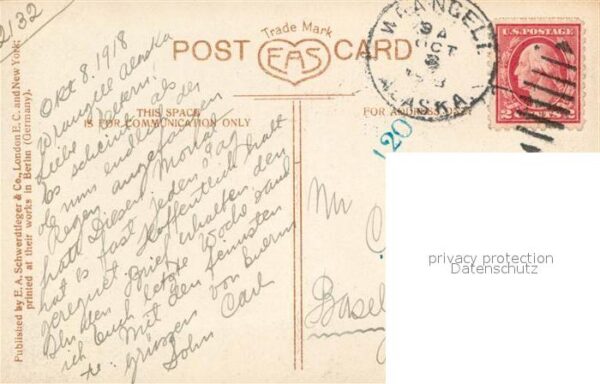 2132
Trade Mark
POST CARD
EAS
WRANGELL
9 A
OCT
ALASKA
U.S. POSTAGE
2 CENTS 2
THIS SPACE
IS FOR COMMUNICATION ONLY
FOR ADDRESS ONLY
120
Published by E. A. Schwerdtfeger & Co., London E. C. and New York:
printed at their works in Berlin (Germany).
Okt 8. 1918
Wrangell Alaska
Liebe Eltern.
Es scheint als
ob nun endlich der
Regen angefangen
hat. Diesen Monat
hat es fast jeden Tag
geregnet. Hoffentlich hatt
Ihr den Brief erhalten den
ich Euch letzte Woche sand
te. Mit den feinsten
Grüssen von Euerm
Sohn Carl
Mr
Basel
privacy protection
Datenschutz